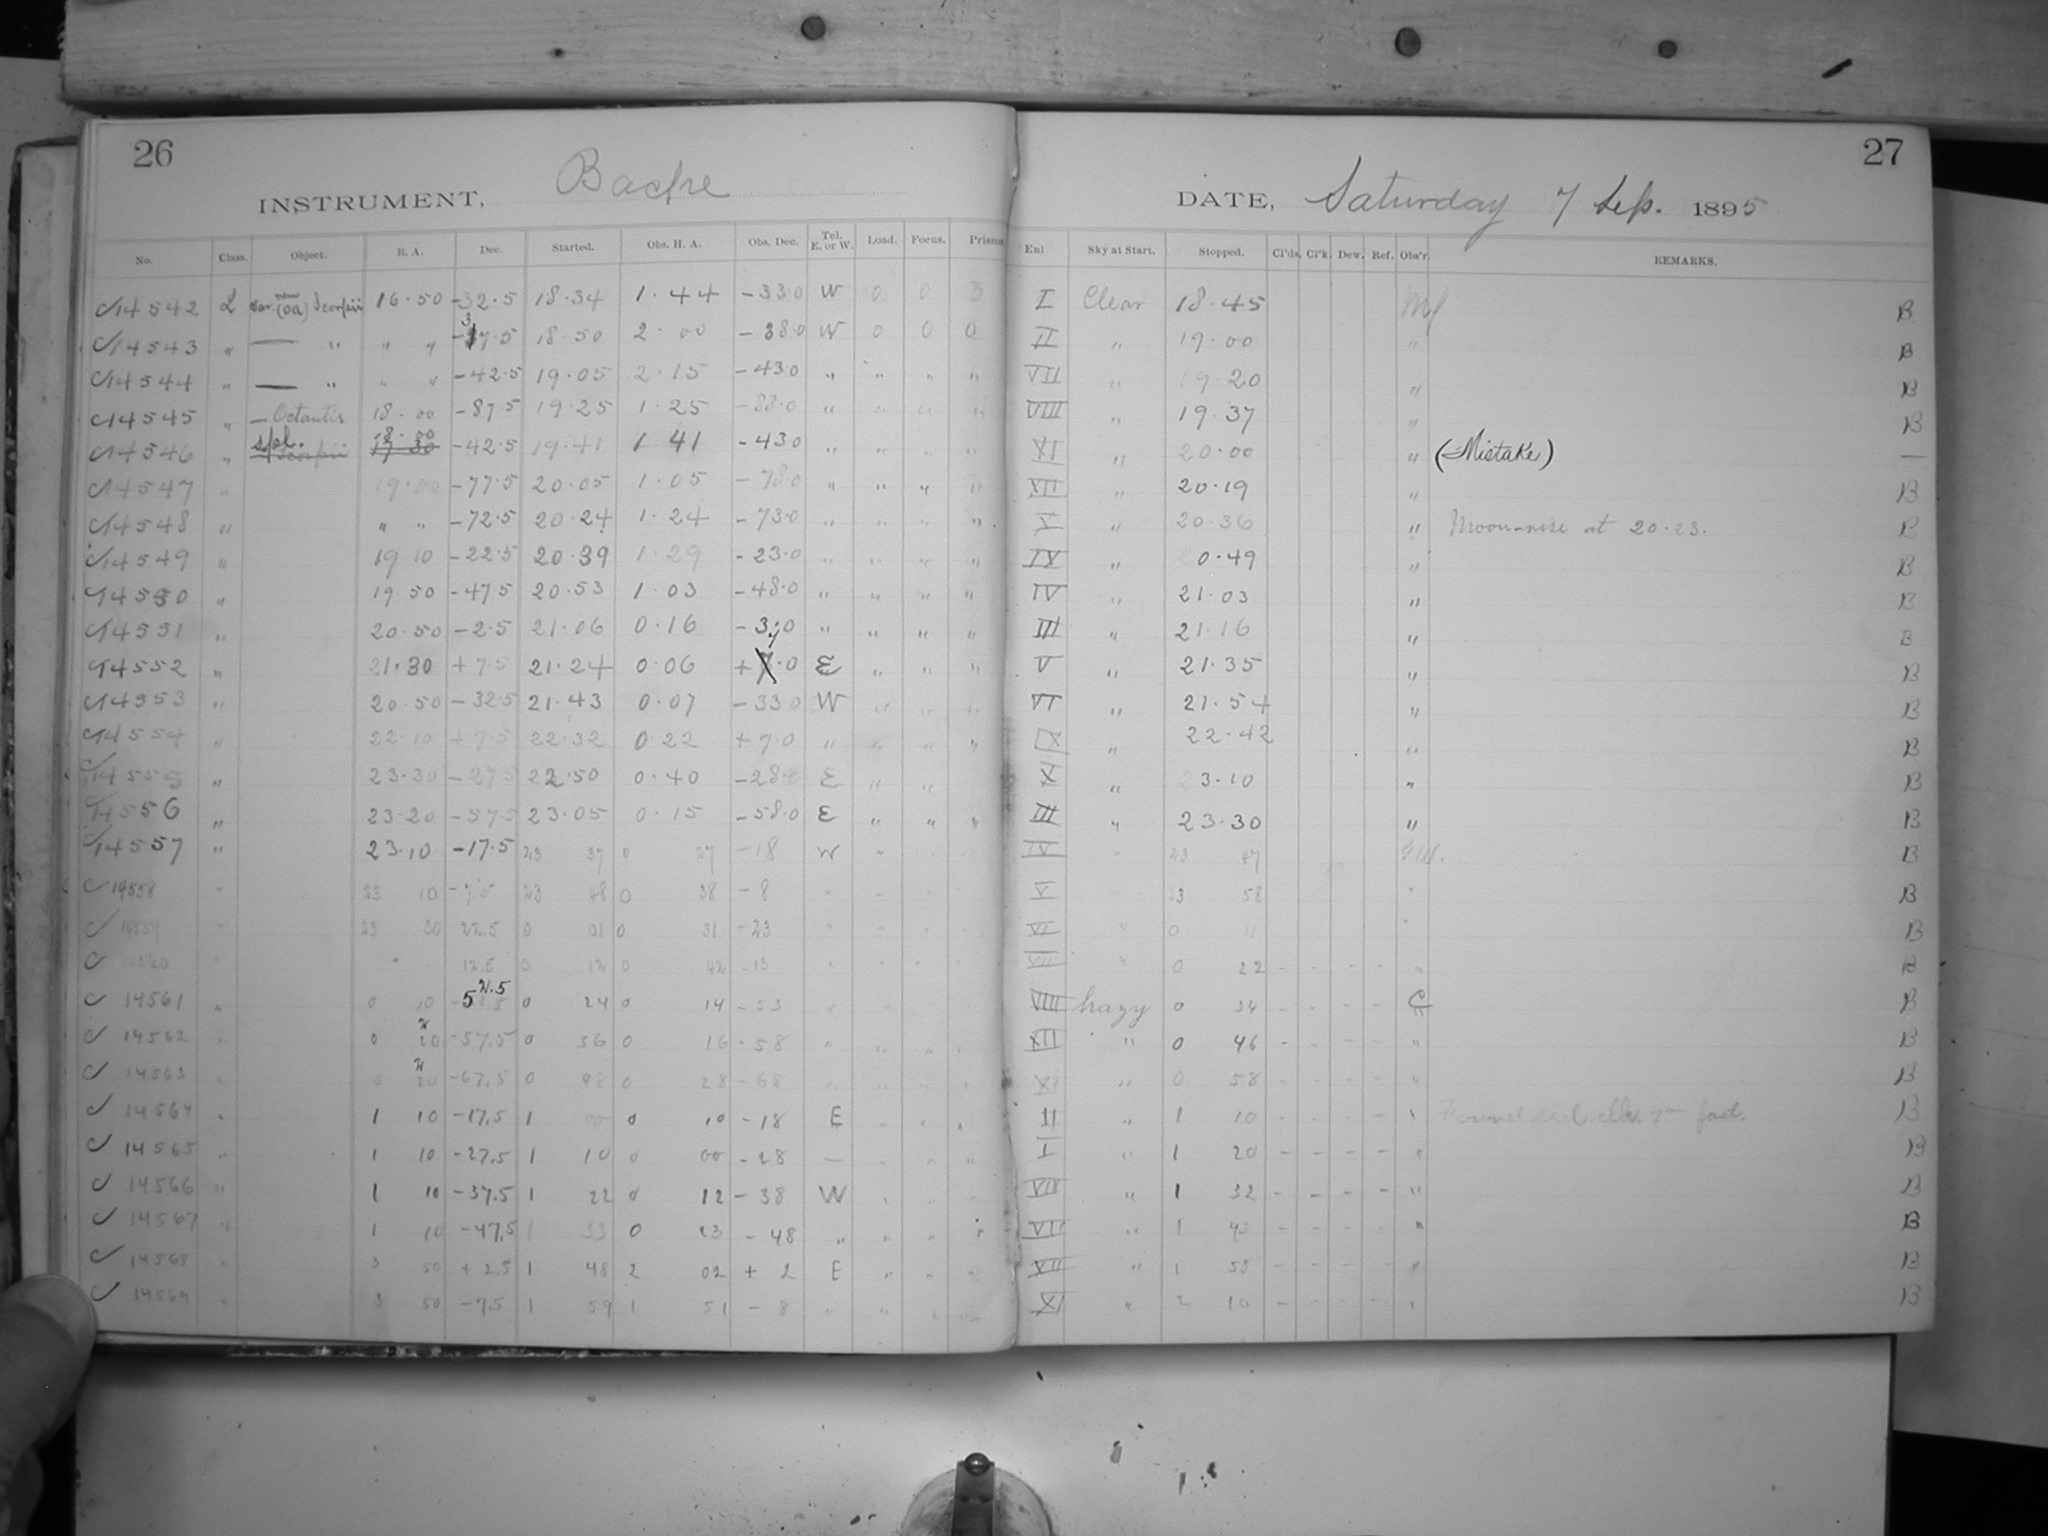 26
INSTRUMENT, Bache
No. Class. Object. R. A. Dec. Started. Obs. H. A. Obs. Dec. Tel. E. or W. Load. Focus. Prisms
14542 L Scorpii 16.50 -32.5 18.34 1.44 -33.0 W 0 0
14543 " — " " " 18.50 2.00 -38.0 W 0 0 0
14544 " — " " " -42.5 19.05 2.15 -43.0 " " " "
14545 " — Octantis 18.00 -87.5 19.25 1.25 -88.0 " " " "
14546 " spl. 18.00 -42.5 19.41 1 41 -43.0 " " " "
14547 " 19.00 -77.5 20.05 1.05 -78.0 " " " "
14548 " " " -72.5 20.24 1.24 -73.0 " " " "
14549 " 19 10 -22.5 20.39 1.29 -23.0 " " " "
14550 " 19.50 -47.5 20.53 1.03 -48.0 " " " "
14551 " 20.50 -2.5 21.06 0.16 -3.0 " " " "
14552 " 21.30 +7.5 21.24 0.06 E " " "
14553 " 20.50 -32.5 21.43 0.07 -33.0 W " " "
14554 " 22.10 +7.5 22.32 0.22 +7.0 " " " "
14555 " 23.30 -27.5 22.50 0.40 -28.0 E " "
14556 " 23.20 -57.5 23.05 0.15 -58.0 E " " "
14557 " 23.10 -17.5 23 37 0 27 -18 W " "
14558 " 23 10 -7.5 23 48 0 38 -8
14559 " 23 30 22.5 0 01 0 31 -23
1560 " " 12.5 0 12 0 42 -13
14561 " 0 10 0 24 0 14 -53
14562 " 0 -57.5 0 36 0 16 -58
14563 " 0 -67.5 0 48 0 28 -68
14564 " 1 10 -17.5 1 00 0 10 -18 E " " "
14565 " 1 10 -27.5 1 10 0 00 -28 — " " "
14566 " 1 10 -37.5 1 22 0 12 -38 W " "
14567 " 1 10 -47.5 1 33 0 23 -48 " " "
14568 " 3 50 +2.5 1 48 2 02 +2 E " " "
14569 " 3 50 -7.5 1 59 1 51 -8 " "
27
DATE, Saturday 7 Sep. 1895
Enl Sky at Start. Stopped. Cl'ds. Cl'k. Dew. Ref. Obs'r. REMARKS.
I Clear 18.45 B
II " 19.00 " B
VII " 19.20 " B
VIII " 19.37 " B
XI " 20.00 " (Mistake) —
XII " 20.19 " B
V " 20.36 " Moon-rise at 20.23. B
IX " 20.49 " B
IV " 21.03 " B
III " 21.16 " B
V " 21.35 " B
VI " 21.54 " B
IX " 22.42 " B
X " 23.10 " B
III " 23.30 " B
IV " 23 47 B
V 23 58 " B
VI " 0 11 " B
VII " 0 22 - - - - " B
VIII hazy 0 34 - - - - C B
XII " 0 46 - - - - " B
XI " 0 58 - - - - " B
II " 1 10 - - - - " fast. B
I " 1 20 - - - - " B
VIII " 1 32 - - - - " B
VI " 1 43 - - - - " B
XII " 1 58 - - - - " B
XI " 2 10 - - - - " B